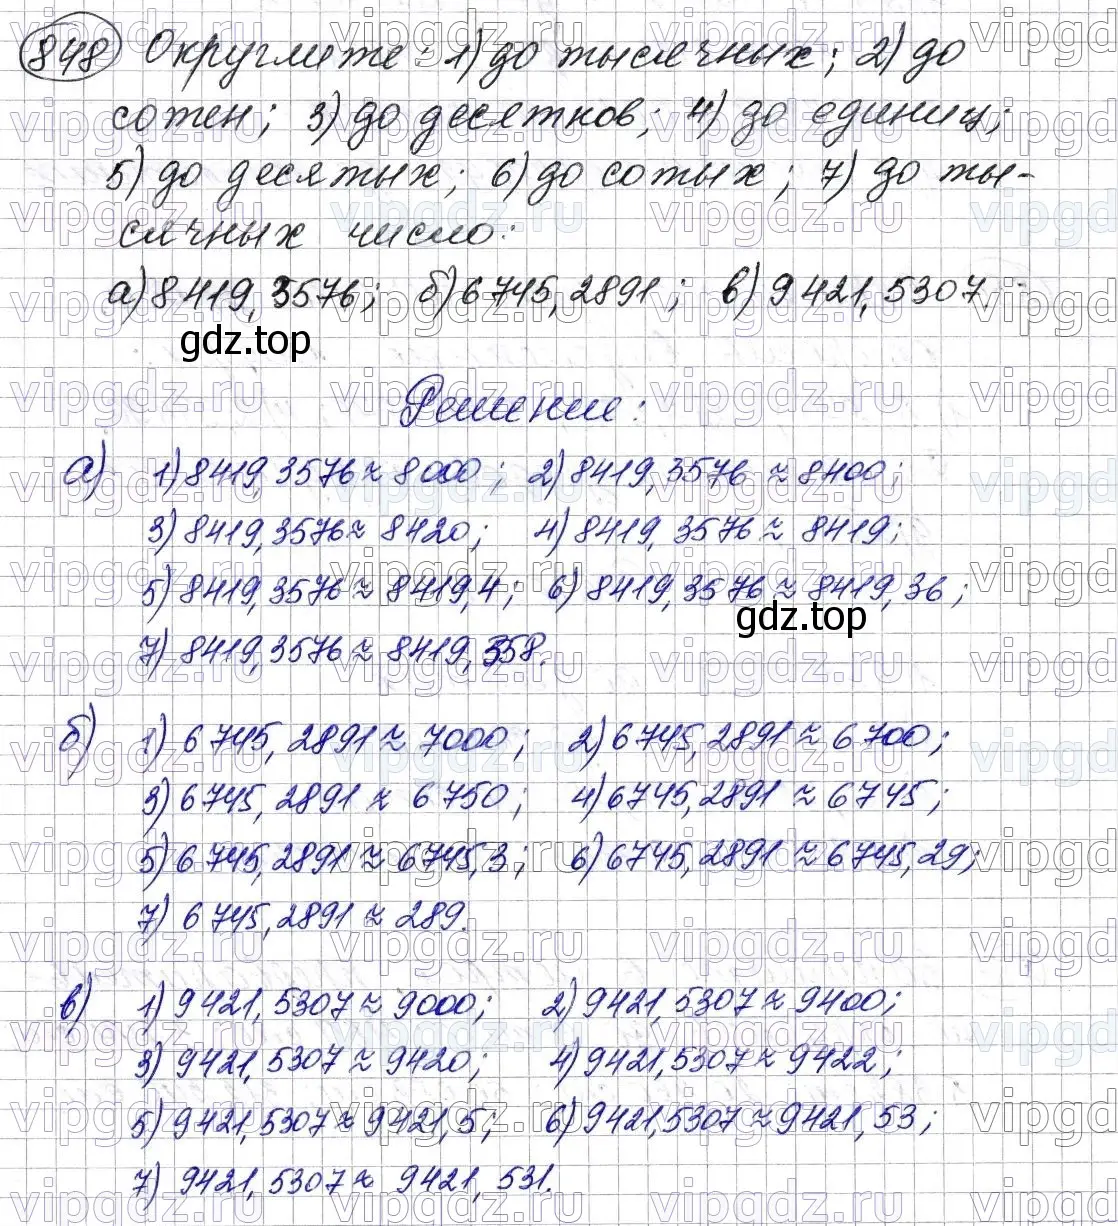 848 Округлите: 1) до тысячных; 2) до
сотен; 3) до десятков; 4) до единиц;
5) до десятых; 6) до сотых; 7) до ты-
сячных число:
а) 8419,3576; б) 6745,2891; в) 9421,5307.
gdz.top
Решение:
а) 1) 8419,3576 ≈ 8000; 2) 8419,3576 ≈ 8400;
3) 8419,3576 ≈ 8420; 4) 8419,3576 ≈ 8419;
5) 8419,3576 ≈ 8419,4; 6) 8419,3576 ≈ 8419,36;
gdz.top
7) 8419,3576 ≈ 8419,358.
б) 1) 6745,2891 ≈ 7000; 2) 6745,2891 ≈ 6700;
3) 6745,2891 ≈ 6750; 4) 6745,2891 ≈ 6745;
5) 6745,2891 ≈ 6745,3; 6) 6745,2891 ≈ 6745,29;
7) 6745,2891 ≈ 289.
в) 1) 9421,5307 ≈ 9000; 2) 9421,5307 ≈ 9400;
3) 9421,5307 ≈ 9420; 4) 9421,5307 ≈ 9422;
5) 9421,5307 ≈ 9421,5; 6) 9421,5307 ≈ 9421,53;
7) 9421,5307 ≈ 9421,531.
vipgdz.ru